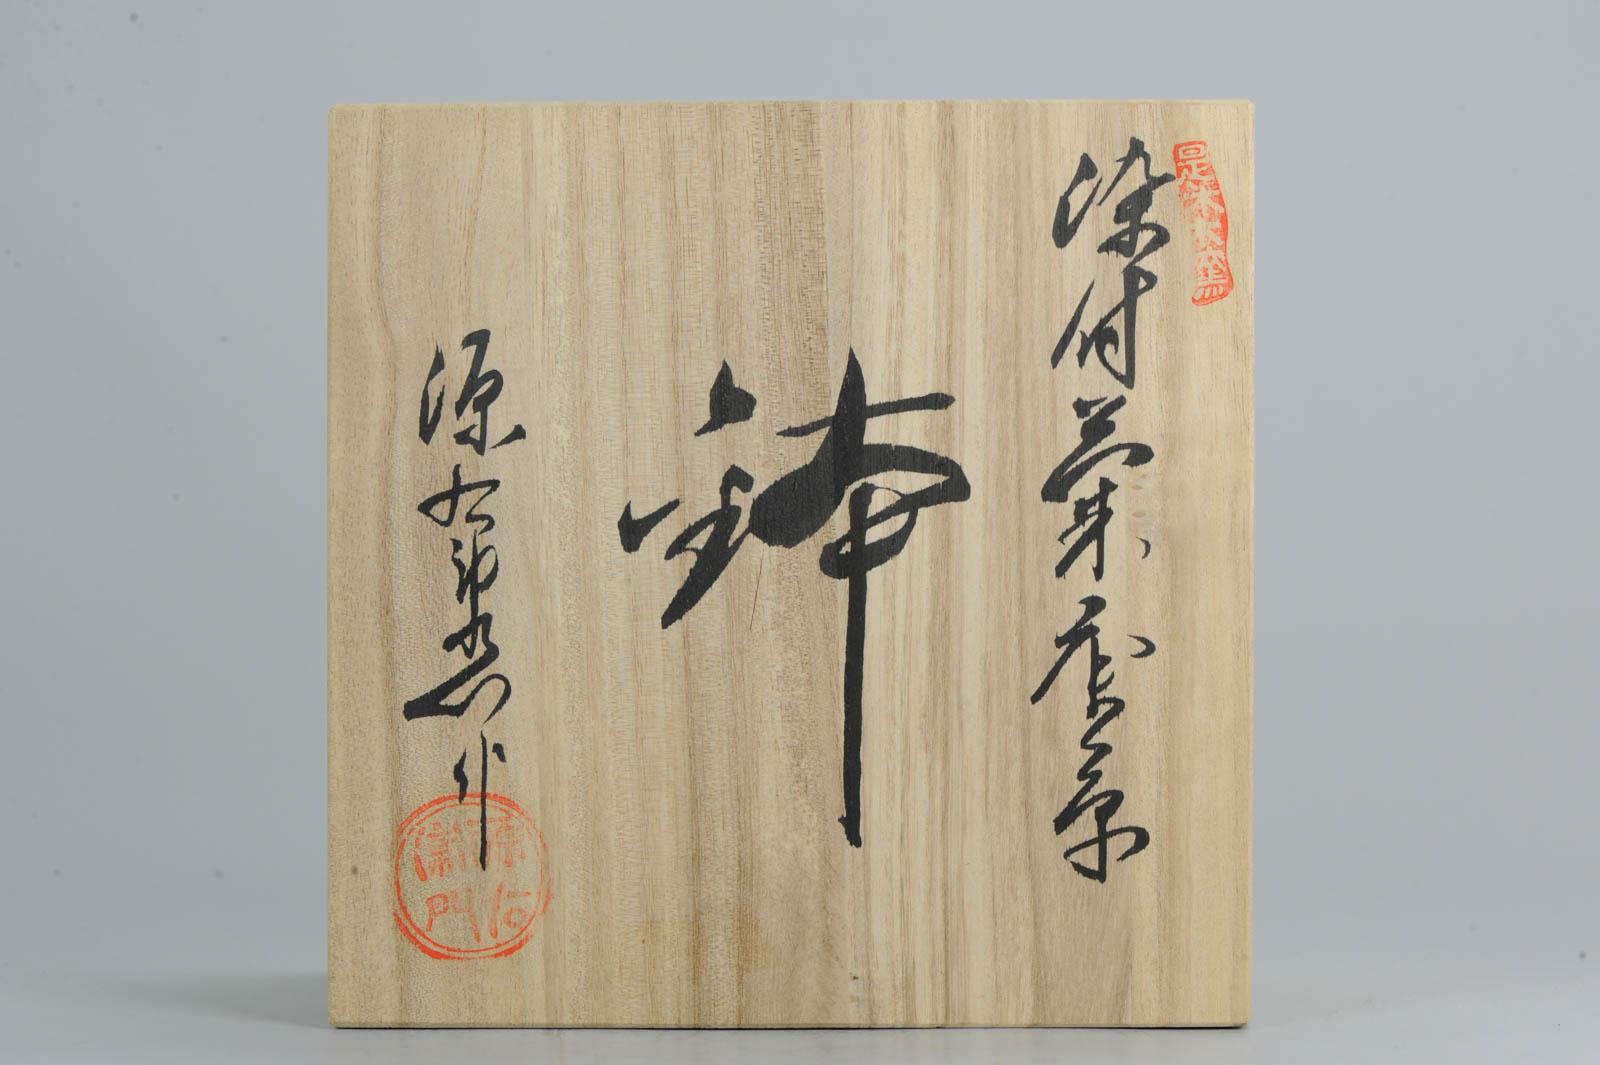 染付菊唐草
鉢
源右衛門作
源右
衛門